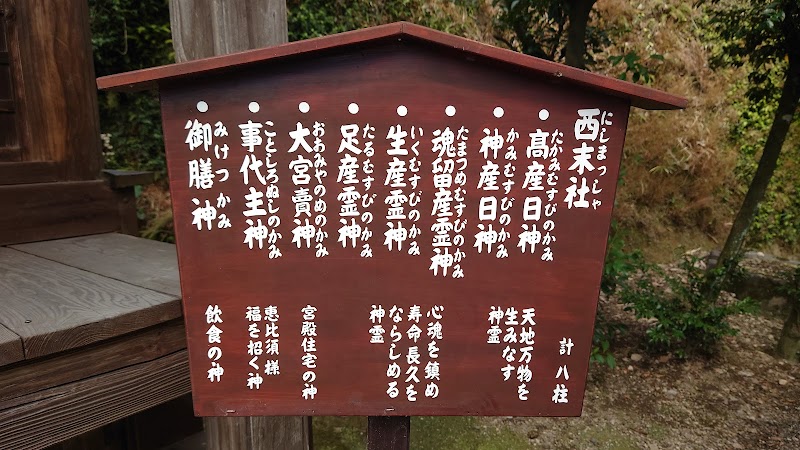 西末社
にしまつしゃ
計 八柱
髙産日神
たかみむすびのかみ
神産日神
かみむすびのかみ
天地万物を
生みなす
神霊
魂留産霊神
たまつめむすびのかみ
生産霊神
いくむすびのかみ
足産霊神
たるむすびのかみ
心魂を鎮め
寿命長久を
ならしめる
神霊
大宮賣神
おおみやのめのかみ
宮殿住宅の神
事代主神
ことしろぬしのかみ
恵比須様
福を招く神
御膳神
みけつかみ
飲食の神